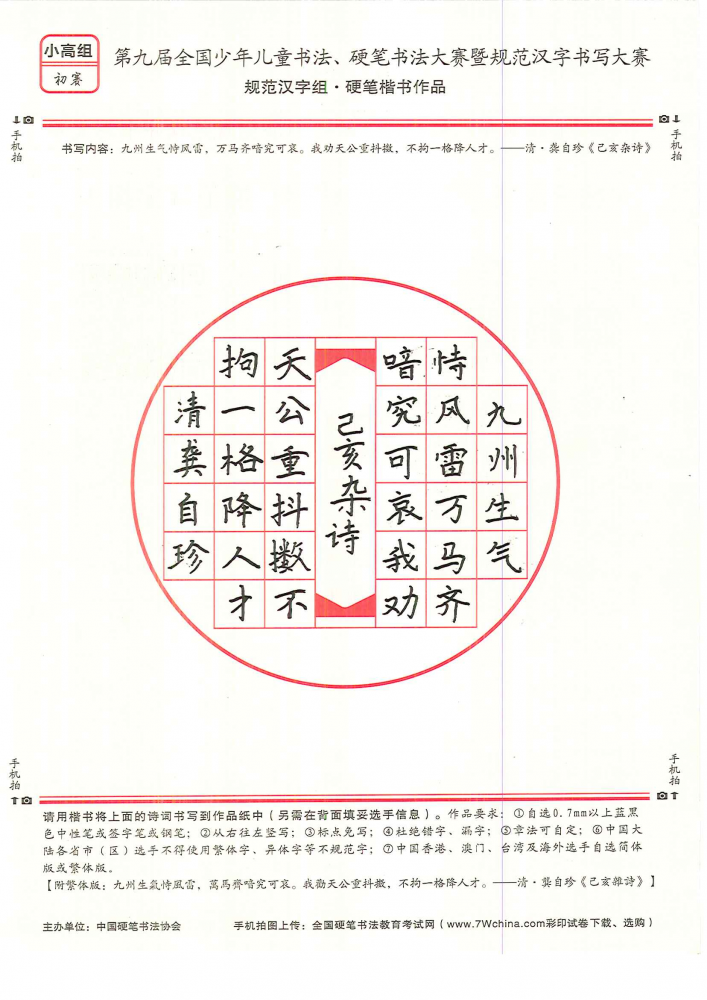 小高组
初赛
第九届全国少年儿童书法、硬笔书法大赛暨规范汉字书写大赛
规范汉字组·硬笔楷书作品
手机拍
手机拍
书写内容：九州生气恃风雷，万马齐喑究可哀。我劝天公重抖擞，不拘一格降人才。——清·龚自珍《己亥杂诗》
九州生气
恃风雷万马齐
喑究可哀我劝
己亥杂诗
天公重抖擞不
拘一格降人才
清龚自珍
手机拍
手机拍
请用楷书将上面的诗词书写到作品纸中（另需在背面填妥选手信息）。作品要求：①自选0.7mm以上蓝黑
色中性笔或签字笔或钢笔；②从右往左竖写；③标点免写；④杜绝错字、漏字；⑤章法可自定；⑥中国大
陆各省市（区）选手不得使用繁体字、异体字等不规范字；⑦中国香港、澳门、台湾及海外选手自选简体
版或繁体版。
【附繁体版：九州生氣恃風雷，萬馬齊喑究可哀。我勸天公重抖擻，不拘一格降人才。——清·龔自珍《己亥雜詩》】
主办单位：中国硬笔书法协会
手机拍图上传：全国硬笔书法教育考试网（www.7Wchina.com彩印试卷下载、选购）